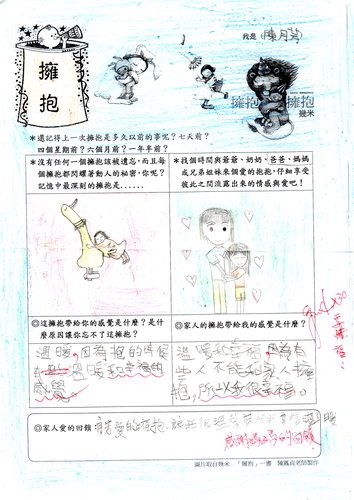 擁抱
我是 陳月
擁抱 擁抱
幾米
*還記得上一次擁抱是多久以前的事呢？七天前？
四個星期前？六個月前？一年半前？
*沒有任何一個擁抱該被遺忘，而且每
個擁抱都閃耀著動人的祕密，你呢？
記憶中最深刻的擁抱是……
*找個時間與爺爺、奶奶、爸爸、媽媽
或兄弟姐妹來個愛的抱抱，仔細享受
彼此之間流露出來的情感與愛吧！
◎這擁抱帶給你的感覺是什麼？是什
麼原因讓你忘不了這擁抱？
溫暖，因為抱的時候
溫暖和幸福的
感覺
◎家人的擁抱帶給我的感覺是什麼？
溫暖和幸福，因為有
些人不能和家人擁
抱，所以我很幸福。
◎家人愛的回饋
愛的擁抱
感謝媽媽的回饋
圖片取自幾米 「擁抱」一書 陳鳳貞老師製作